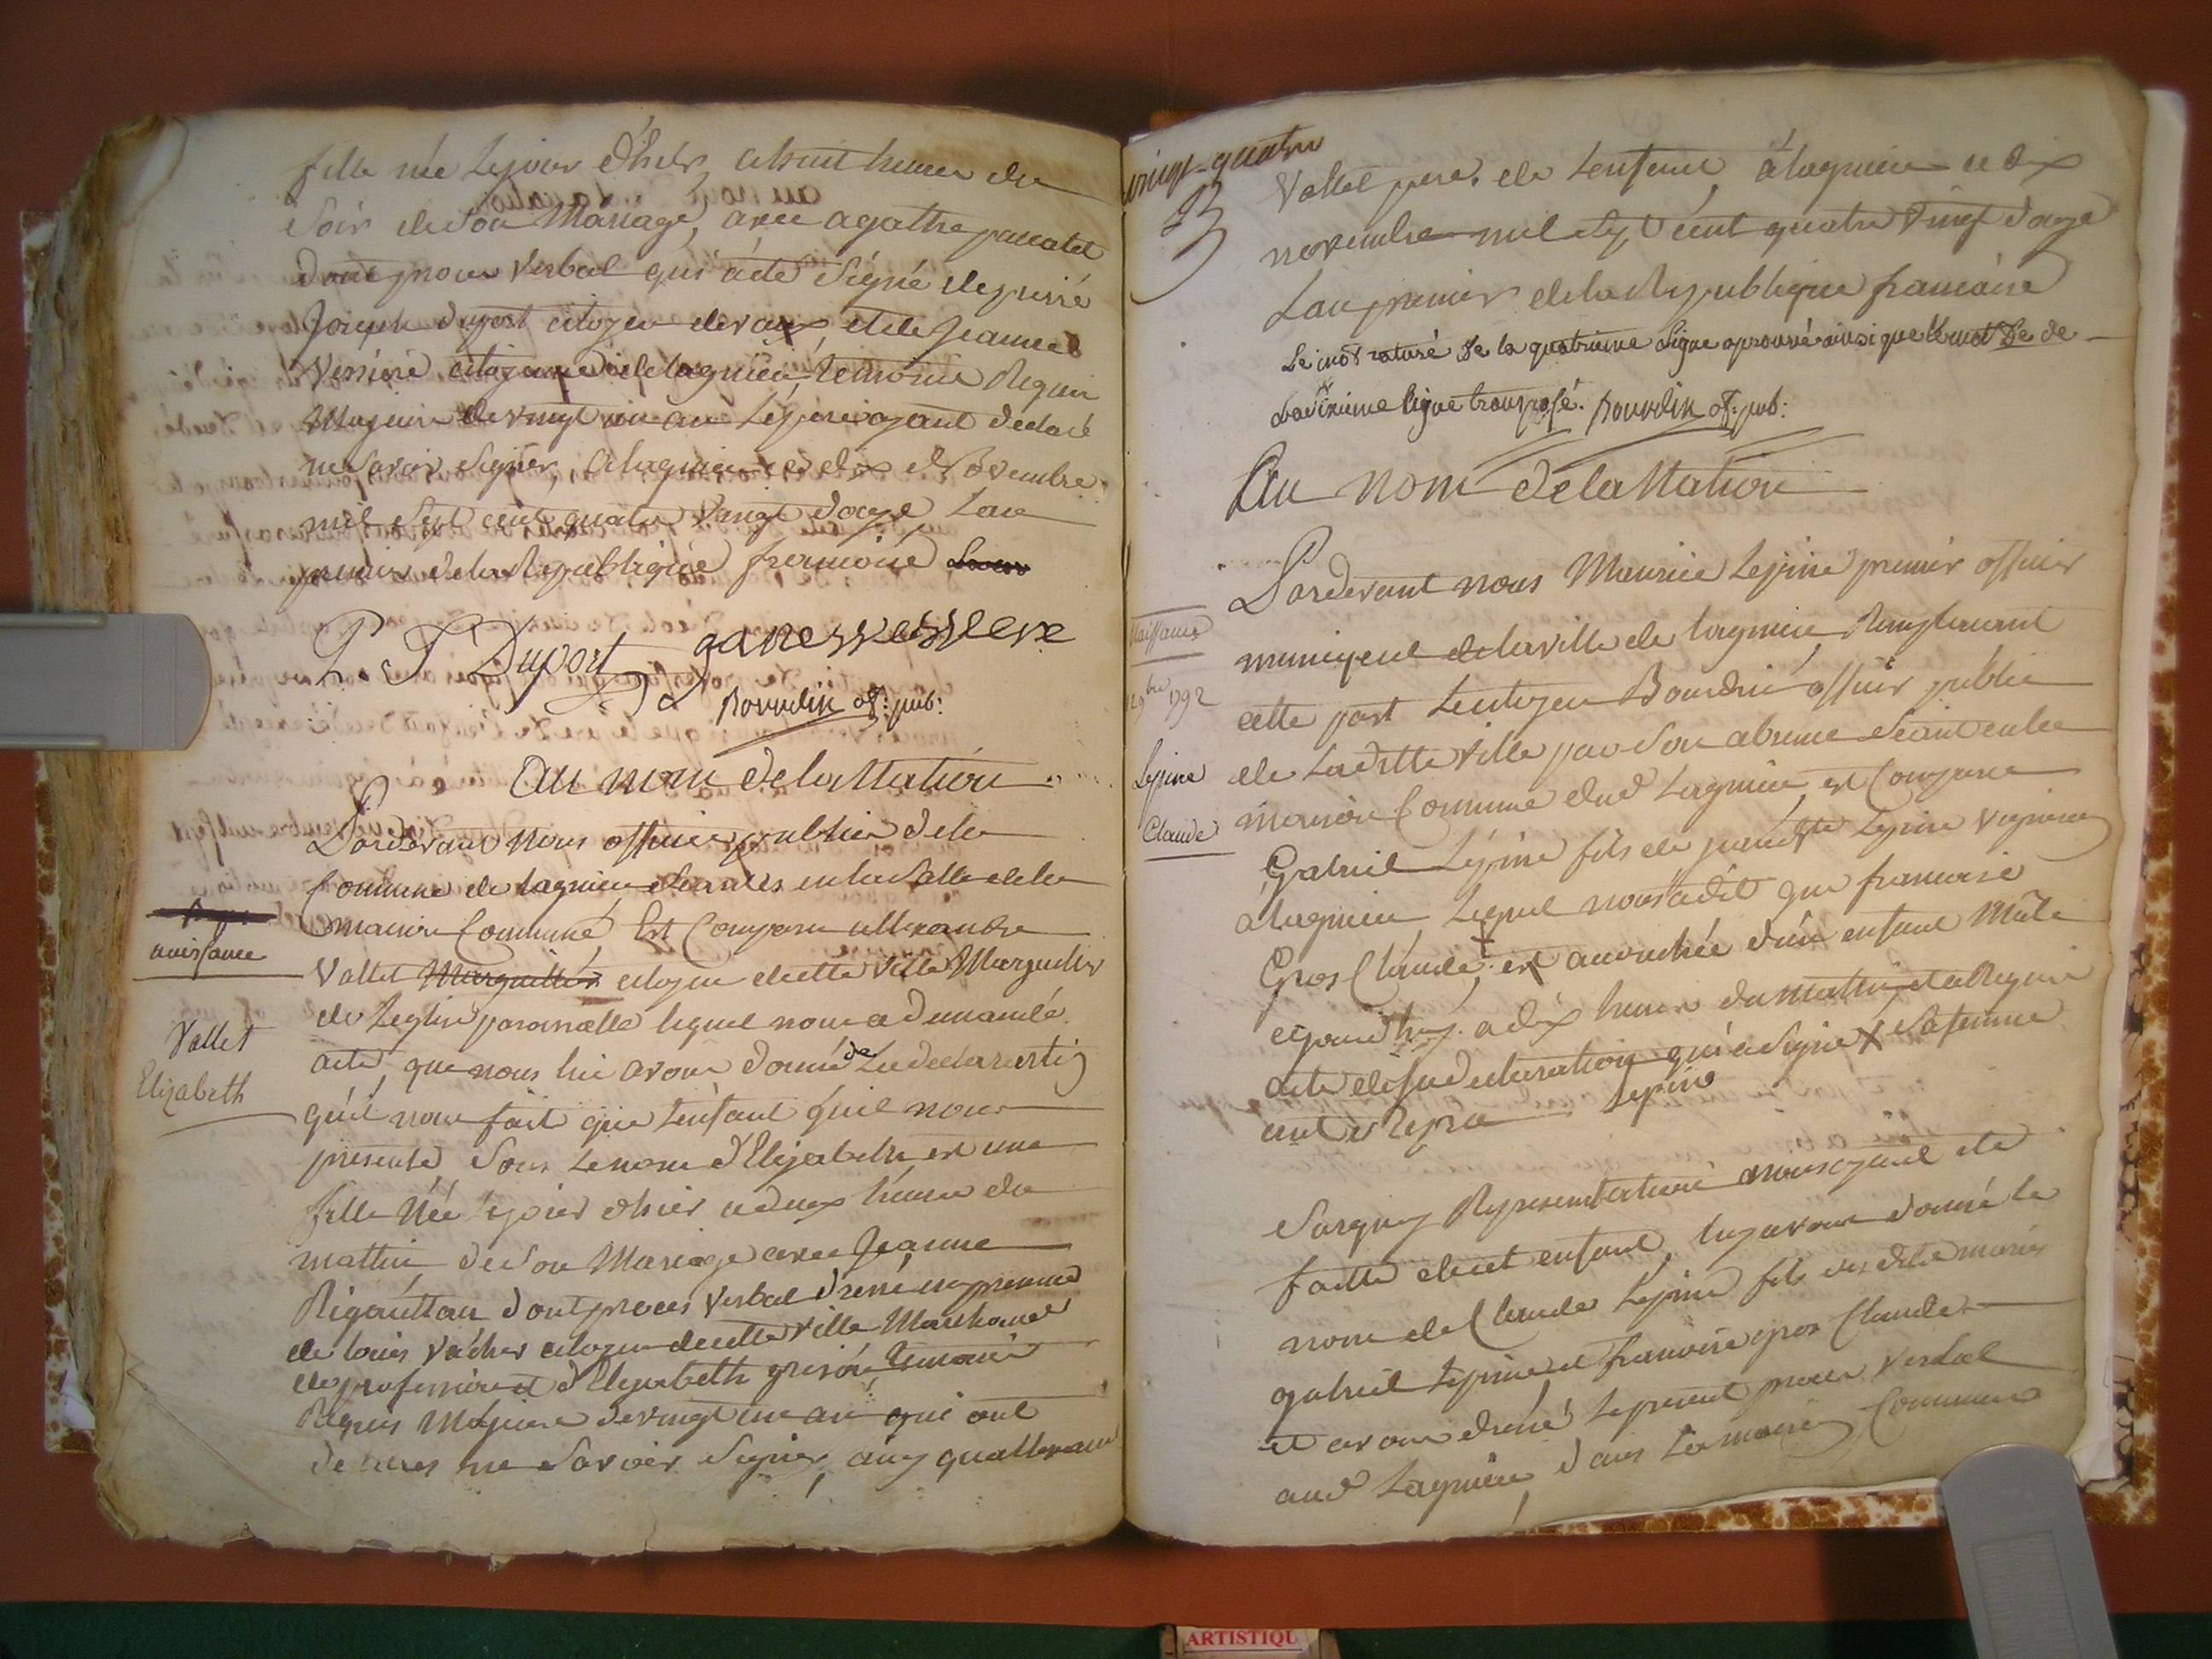 fille née le jour d'hier a huit heures du
soir de son Mariage, avec agathe
dont proces verbal qui a été signé de pierre
Joseph duport citoyen de vaux et de Jeanne
Vessiere citoyenne de lagnieu, temoins Requis
Majeurs de vingt un ans le pere ayant declaré
ne savoir signer, a lagnieu ce dix Novembre
mil sept cent quatre vingt douze Lan
premier de la Republique francoise
P. J. Duport ganesvessiere
Bourdin of: pub:
Au nom de la Nation
Pardevant Nous officier public de la
Commune de lagnieu seants en la salle de la
naissance
maison Commune, Est Comparu allexandre
Vallet Marguillier citoyen de cette ville Marguillier
de Leglise paroissialle lequel nous a demandé
Vallet
acte, que nous lui avons donné de La declaration
Elizabeth
qu'il nous fait que Lenfant quil nous
presente sous le nom d'Elizabeth est une
fille Née le jour d'hier a deux heures du
mattin de son Mariage avec Jeanne
dont proces verbal dressé en presence
de louis vacher citoyen de cette ville Marchand
de profession et d'Elizabeth grisou temoins
Requis Majeurs de vingt un ans qui ont
declarés ne savoir signer, ainsy quallexandre
vingt-quatre
Vallet pere de Lenfant, a lagnieu ce dix
novembre mil sept cent quatre vingt douze
Lan premier de la Republique francoise
Le mot raturé de la quatrieme ligne aprouvé ainsi que le mot De de
la dixieme ligne transposé. Bourdin of: pub:
Au nom de la Nation
Pardevant nous Maurice Lepine premier officier
Naissance
municipal de la ville de lagnieu, Remplacant
9bre 1792
cette part Le citoyen Bourdin officier public
de Laditte ville par son absence seant en la
Lepine
maison Commune dud Lagnieu, est Comparu
Claude
Gabriel Lepine fils de jean bte Lepine vigneron
a Lagnieu, Lequel nous a dit que francoise
Gros Claude, est accouchée d'un enfant Mâle
a dix heures du mattin, et a Requis
acte de sa declaration qui a signé X sa femme
Lepine
Surquoy Representation a nous ayant été
faitte de cet enfant, luy avons donné le
nom de Claude Lepine fils desdits mariés
gabriel Lepine et francoise gros Claude
et avons dressé le present proces verbal
aud Lagnieu, dans la maison Commune